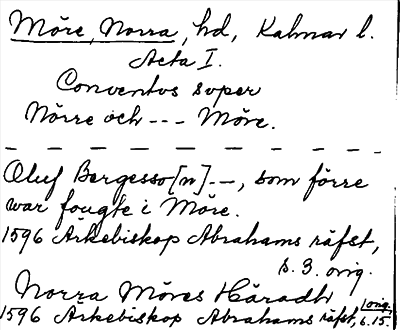 Möre, Norra, hd, Kalmar l.
Acta I.
Conventus super
Nörre och --- Möre.
— — — — — — — — — — — —
Oluf Børgesso[n] -–, som förre
war fougte i Möre.
1596 Ärkebiskop Abrahams räfst,
s. 3. orig.
Norra Möres Häradh
1596 Ärkebiskop Abrahams räfst, s. 15. orig.